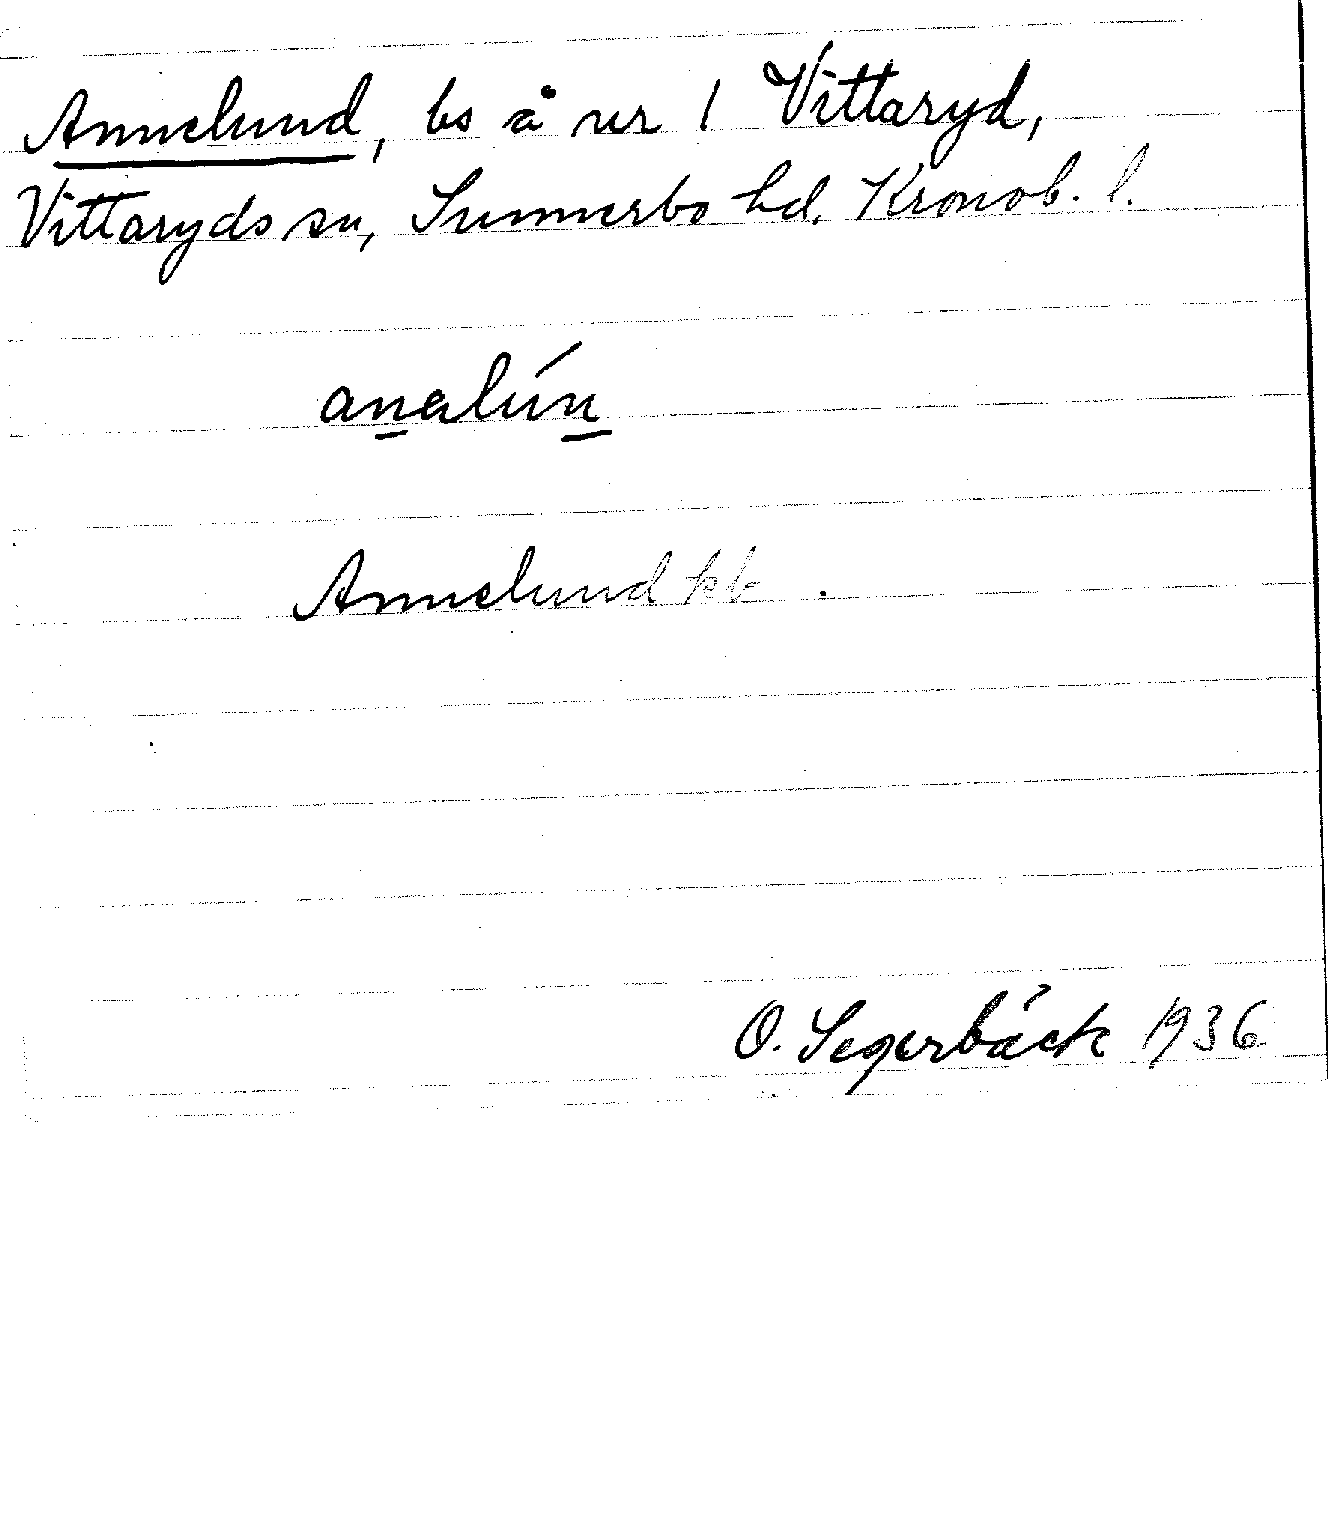 Annelund, bs å nr 1 Vittaryd,
Vittaryds sn, Sunnerbo hd, Kronob. l.
analún
Annelund kk.
O. Segerbäck 1936